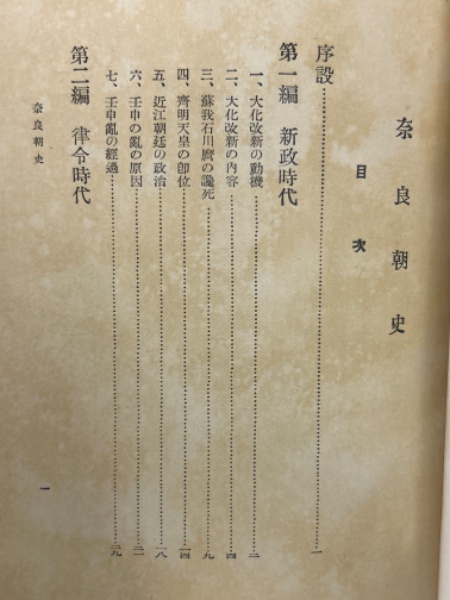 奈良朝史
目次
序説……一
第一編 新政時代
一、大化改新の動機……二
二、大化改新の内容……四
三、蘇我石川麿の讒死……九
四、齊明天皇の卽位……一四
五、近江朝廷の政治……一八
六、壬申の亂の原因……二二
七、壬申亂の經過……二九
第二編 律令時代
奈良朝史
一